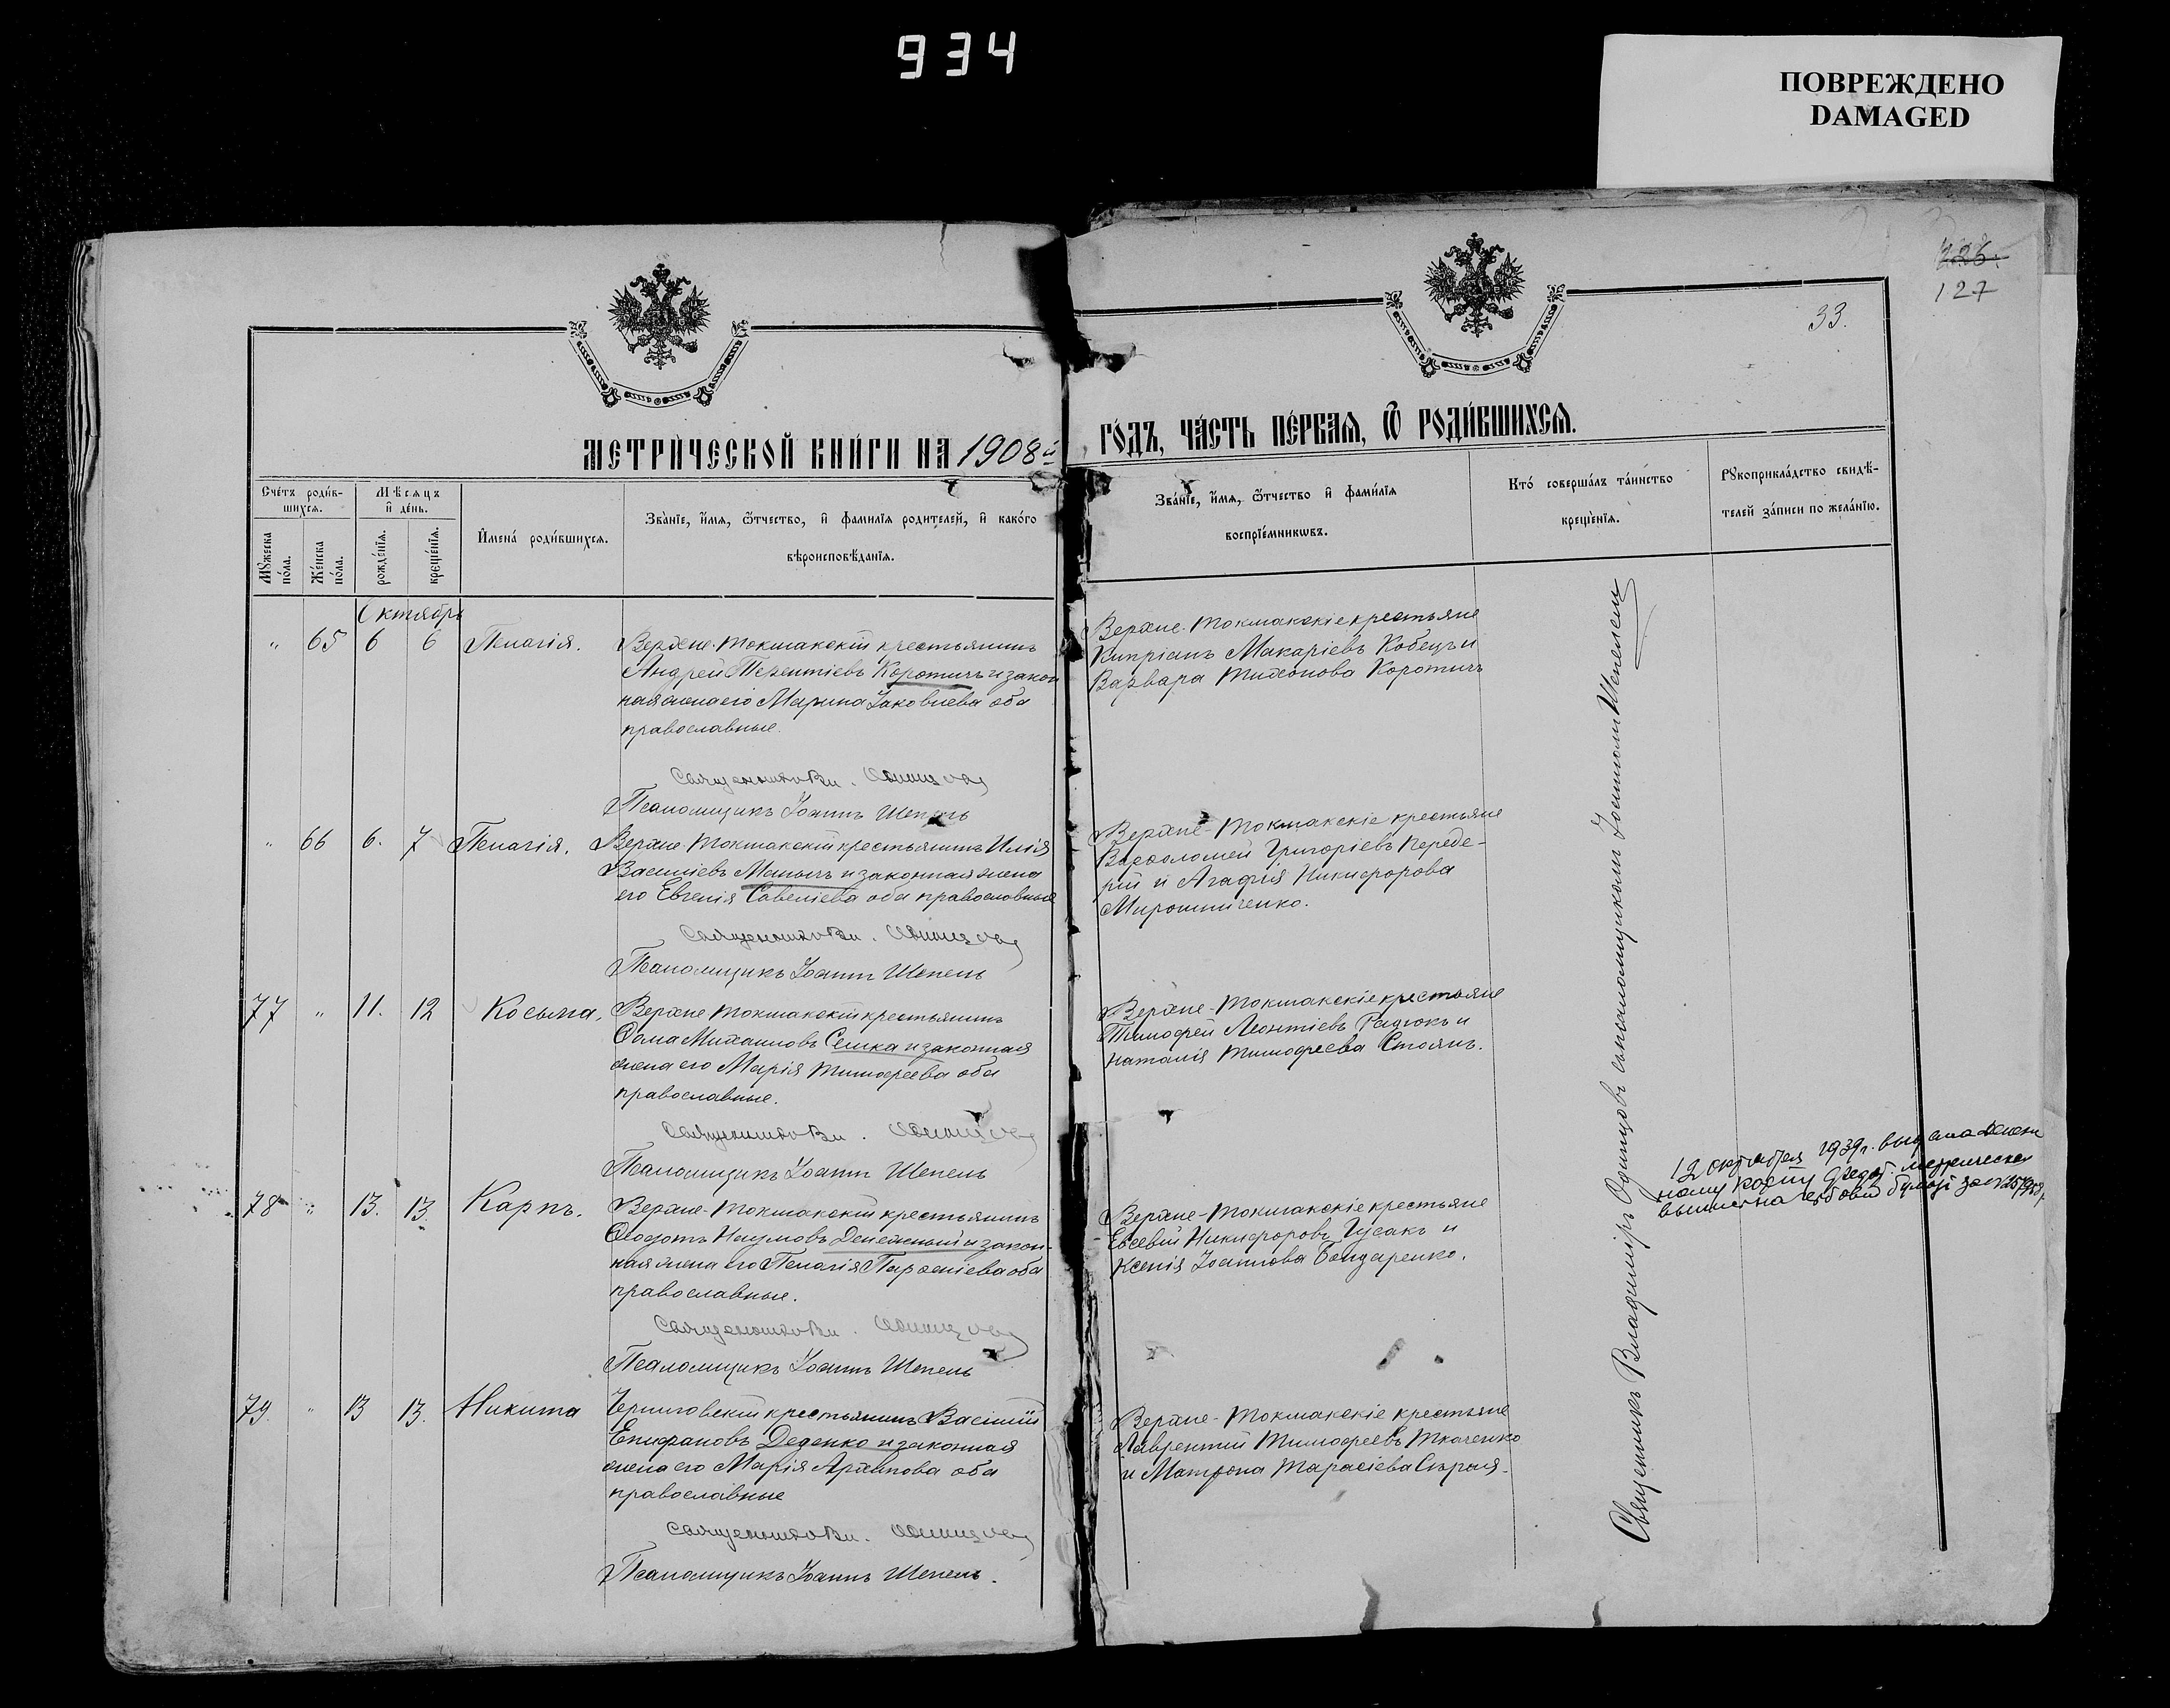 934
ПОВРЕЖДЕНО
DAMAGED
226.
127
33.
МЕТРИ́ЧЕСКОЙ КНИ́ГИ НА 1908й
ГО́ДЪ, ЧА́СТЬ ПЕ́РВАЯ, Ѿ РОДИ́ВШИХСЯ.
Сче́тъ роди́в-
шихся.
Мѣсяцъ
и҆ де́нь.
Мꙋжеска
по́ла.
Же́нска
по́ла.
рожде́нїя.
креще́нїя.
И҆мена́ роди́вшихся.
Зва́нїе, и҆́мя, ѻ҆́тчество, и҆ фами́лїя родителей, и҆ како́го
вѣроисповѣ́данїя.
Зва́нїе, и҆́мя, ѻ҆́тчество и҆ фами́лїя
воспрїе́мникѡвъ.
Кто́ соверша́лъ та́инство
креще́нїя.
Рꙋкоприкла́дство свидѣ́-
телей за́писи по жела́нїю.
Октябрь
" 65 6 6 Пелагія.
Верхне-Токмакскій крестьянинъ
Андрей Терентіевъ Коротичъ и закон
ная жена его Марина Іаковлева оба
православные.
Священникъ Вл. Одинцовъ
Псаломщикъ Іоаннъ Шепель
Верхне-Токмакскіе крестьяне
Кипріанъ Макаріевъ Кобецъ и
Варвара Тихонова Коротичъ
" 66 6. 7 Пелагія.
Верхне-Токмакскій крестьянинъ Илія
Василіевъ Манычъ и законная жена
его Евгенія Савеліева оба православные
Священникъ Вл. Одинцовъ
Псаломщикъ Іоаннъ Шепель
Верхне-Токмакскіе крестьяне
Варѳоломей Григоріевъ Переде-
рій и Агафія Никифорова
Мирошниченко.
77 " 11. 12 Косьма.
Верхне Токмакскій крестьянинъ
Ѳома Михаиловъ Сешка и законная
жена его Марія Тимофеева оба
православные.
Священникъ Вл. Одинцовъ
Псаломщикъ Іоаннъ Шепель
Верхне-Токмакскіе крестьяне
Тимофей Леонтіевъ Радюкъ и
Наталія Тимофеева Стоянъ.
78 " 13. 13 Карпъ.
Верхне-Токмакскій крестьянинъ
Ѳеодотъ Наумовъ Денежный и закон-
ная жена его Пелагія Парѳеніева оба
православные.
Священникъ Вл. Одинцовъ
Псаломщикъ Іоаннъ Шепель
Верхне-Токмакскіе крестьяне
Евсевій Никифоровъ Гусакъ и
Ксенія Іоаннова Бондаренко.
12 октября 1939г. выдана Денеж
ному Карпу Федот. метрическая
79. " 13 13. Никита
Черниговскій крестьянинъ Василій
Епифановъ Деденко и законная
жена его Марія Архипова оба
православные
Священникъ Вл. Одинцовъ
Псаломщикъ Іоаннъ Шепель.
Верхне-Токмакскіе крестьяне
Лаврентій Тимофеевъ Ткаченко
и Матрона Тарасіева Сѣрая.
Священникъ Владиміръ Одинцовъ съ псаломщикомъ Іоанномъ Шепелемъ